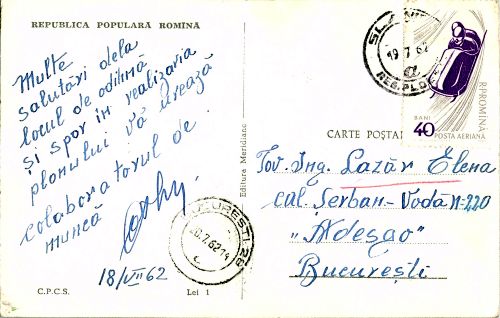 REPUBLICA POPULARĂ ROMÎNĂ
Multe
salutări dela
locul de odihnă
și spor în realizaria
planului vă urează
colaboratorul de
muncă
18/VII 62
C.P.C.S.
Lei 1
Editura Meridiane
BUCUREȘTI·26
20.7.62 14
19.7.62
REG.PLO
R.P.ROMÎNĂ
BANI
40
POȘTA AERIANĂ
CARTE POȘTA
Tov. Ing. Lazăr Elena
Cal. Șerban-Vodă N=220
„Adesgo"
București